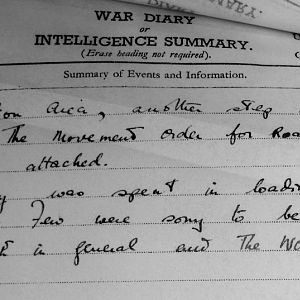 WAR DIARY
or
INTELLIGENCE SUMMARY.
(Erase heading not required).
Summary of Events and Information.
Area, another step
The Movement Order for Roa
attached.
was spent in loadi
Few were sorry to be
in general and The